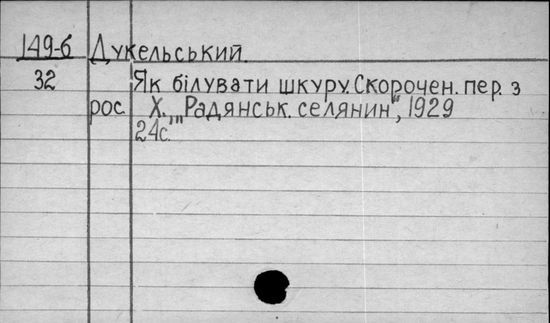 149-б Дукельський.
32 Як білувати шкуру. Скорочен. пер. з
рос. Х., „Радянськ. селянин", 1929
24с.